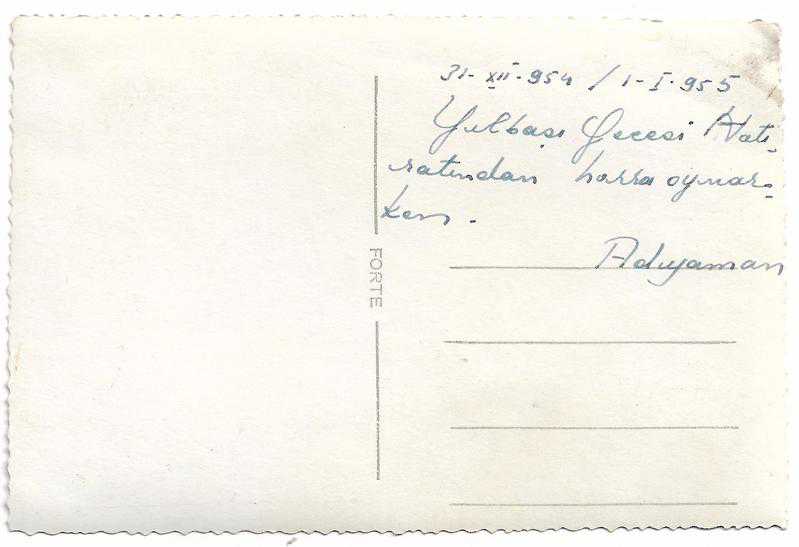 31-XII-954 / 1-I-955
Yılbaşı Gecesi Hatı-
ratından horra oynar-
ken.
Adıyaman
FORTE